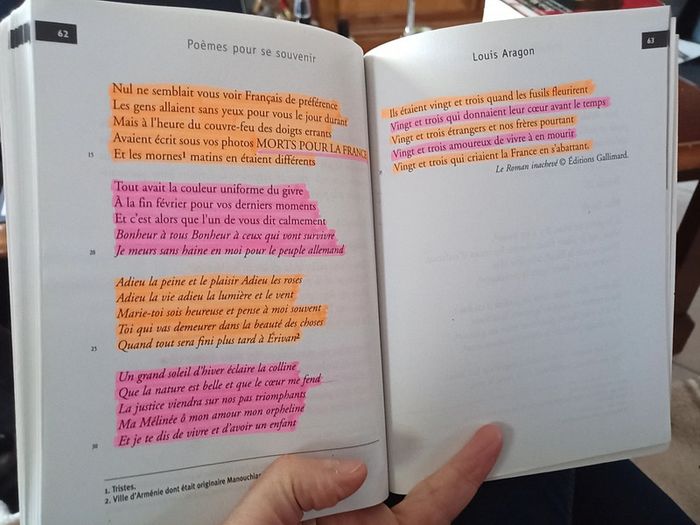 62
Poèmes pour se souvenir
Nul ne semblait vous voir Français de préférence
Les gens allaient sans yeux pour vous le jour durant
Mais à l'heure du couvre-feu des doigts errants
Avaient écrit sous vos photos MORTS POUR LA FRANCE
15
Et les mornes¹ matins en étaient différents
Tout avait la couleur uniforme du givre
À la fin février pour vos derniers moments
Et c'est alors que l'un de vous dit calmement
Bonheur à tous Bonheur à ceux qui vont survivre
20
Je meurs sans haine en moi pour le peuple allemand
Adieu la peine et le plaisir Adieu les roses
Adieu la vie adieu la lumière et le vent
Marie-toi sois heureuse et pense à moi souvent
Toi qui vas demeurer dans la beauté des choses
25
Quand tout sera fini plus tard à Érivan²
Un grand soleil d'hiver éclaire la colline
Que la nature est belle et que le cœur me fend
La justice viendra sur nos pas triomphants
Ma Mélinée ô mon amour mon orpheline
30
Et je te dis de vivre et d'avoir un enfant
1. Tristes.
2. Ville d'Arménie dont était originaire Manouchian
Louis Aragon
63
Ils étaient vingt et trois quand les fusils fleurirent
Vingt et trois qui donnaient leur cœur avant le temps
Vingt et trois étrangers et nos frères pourtant
Vingt et trois amoureux de vivre à en mourir
Vingt et trois qui criaient la France en s'abattant.
Le Roman inachevé © Éditions Gallimard.